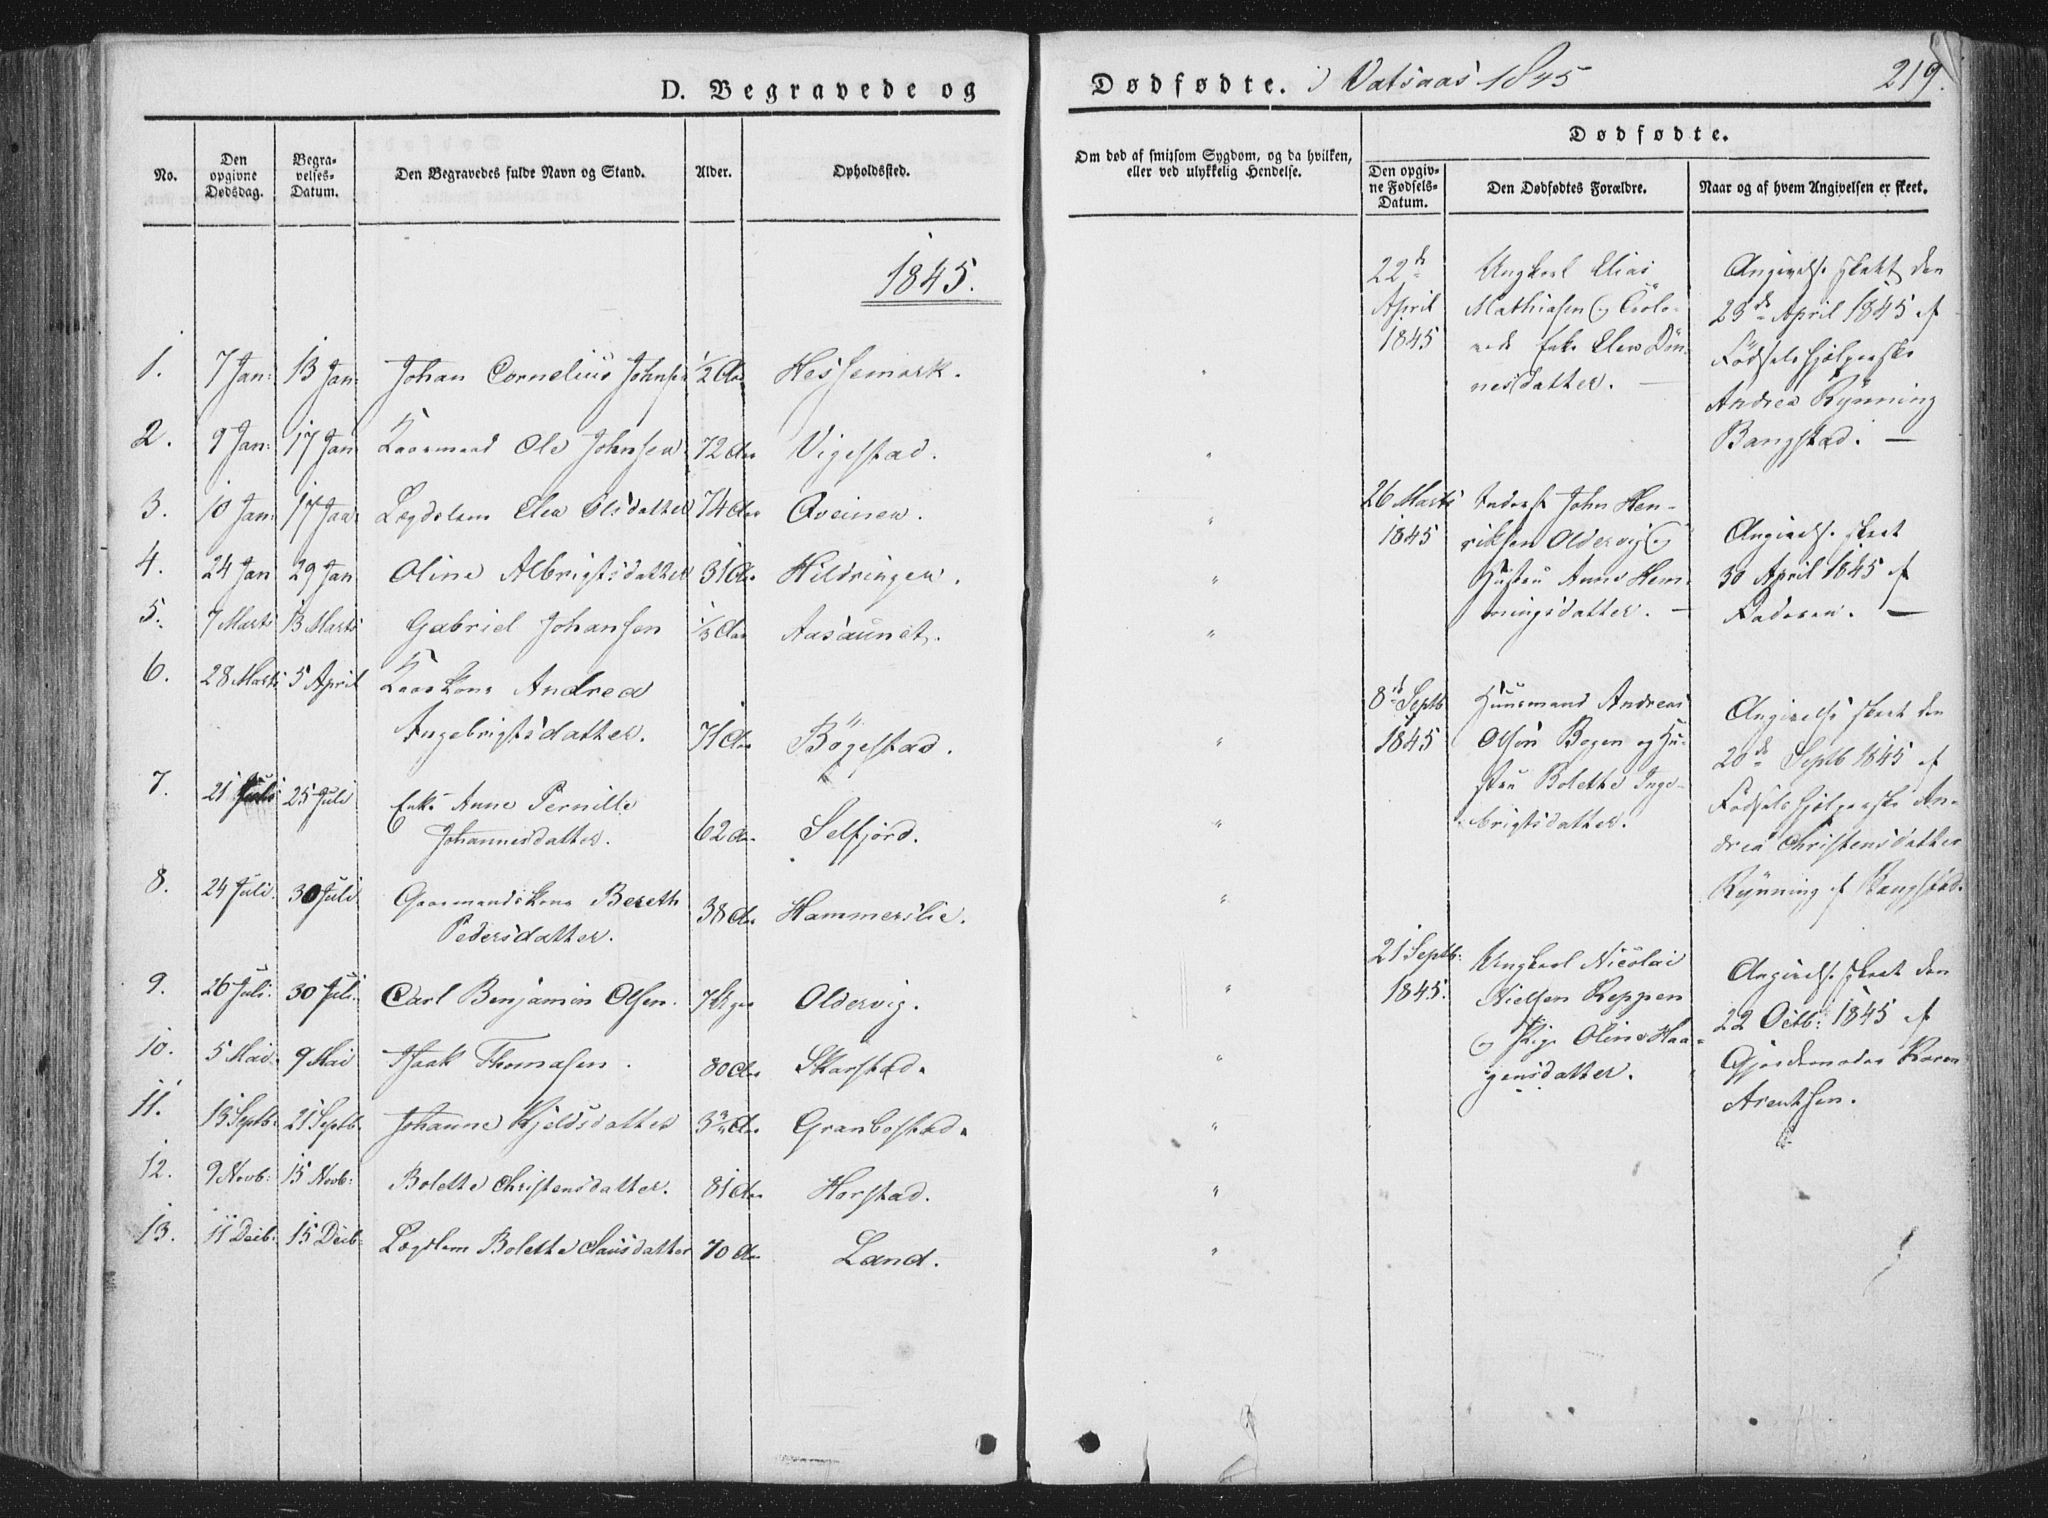 D. Begravede og
Dødfødte. i Vatsaas 1845
219.
No.
Den opgivne Dødsdag.
Begravelses-Datum.
Den Begravedes fulde Navn og Stand.
Alder.
Opholdssted.
Om død af smitsom Sygdom, og da hvilken,
eller ved ulykkelig Hendelse.
Dødfødte.
Den opgivne Fødsels-Datum.
Den Dødfødtes Forældre.
Naar og af hvem Angivelsen er skeet.
1845.
1. 7 Jan: 13 Jan: Johan Cornelius Johnsen 1/2 Aar Hessemark. "
2. 9 Jan: 17 Jan Kaarmand Ole Johnsen 72 Aar Vigestad. "
3. 10 Jan: 17 Jan: Lægdslem Elen Olsdatter 74 Aar Aveinen. "
4. 24 Jan 29 Jan Oline Albrigtsdatter 31 Aar Hildringen. "
5. 7 Marts 13 Marts Gabriel Johansen 1/3 Aar Aasaunet. "
6. 28 Marts 5 April Kaarkone Andrea
Ingebrigtsdatter. 71 Aar Bögestad. "
7. 21 Juli 25 Juli Enke Anne Pernille
Johannesdatter. 62 Aar Selfjord. "
8. 24 Juli 30 Juli Gaarmandskone Bereth
Pedersdatter. 38 Aar Hammerslie. "
9. 26 Juli. 30 Juli. Carl Benjamin Olsen. Oldervig. "
10. 5 Mai. 9 Mai Isaak Thomasen. 80 Aar Skarstad. "
11. 13 Septb: 21 Septb. Johanne Kjeldsdatter Aar Granbostad. "
12. 9 Novb: 15 Novb: Bolette Christensdatter. 81 Aar Horstad. "
13. 11 Decb: 15 Decb: Lægdslem Bolette Clausdatter 70 Aar Land. "
22de
April
1845
Ungkarl Elias
Mathiasen og
Enke Elen Dön-
nesdatter. —
Angivelse skeet den
23de April 1845 af
Födselshjelperske
Andrea Rynning
Bangstad. —
26 Marts
1845
Inderst John Hen-
riksen Oldervig og
Hustru Anne Hem-
mingsdatter. —
Angivelse skeet
30 April 1845 af
Faderen. —
8de Septb
1845
Huusmand Andreas
Olsön Bogen og Hu-
stru Bolethe Inge-
brigtsdatter.
Angivelse skeet den
20de Septb 1845 af
Fødselshjelperske An-
drea Christensdatter
Rynning af Bangstad.
21 Septb:
1845.
Ungkarl Nicolai
Nielsen Reppen
og Pige Oline Haa-
gensdatter.
Angivelse skeet den
22 Octb: 1845 af
Gjordemoder Karen
Arentsen.